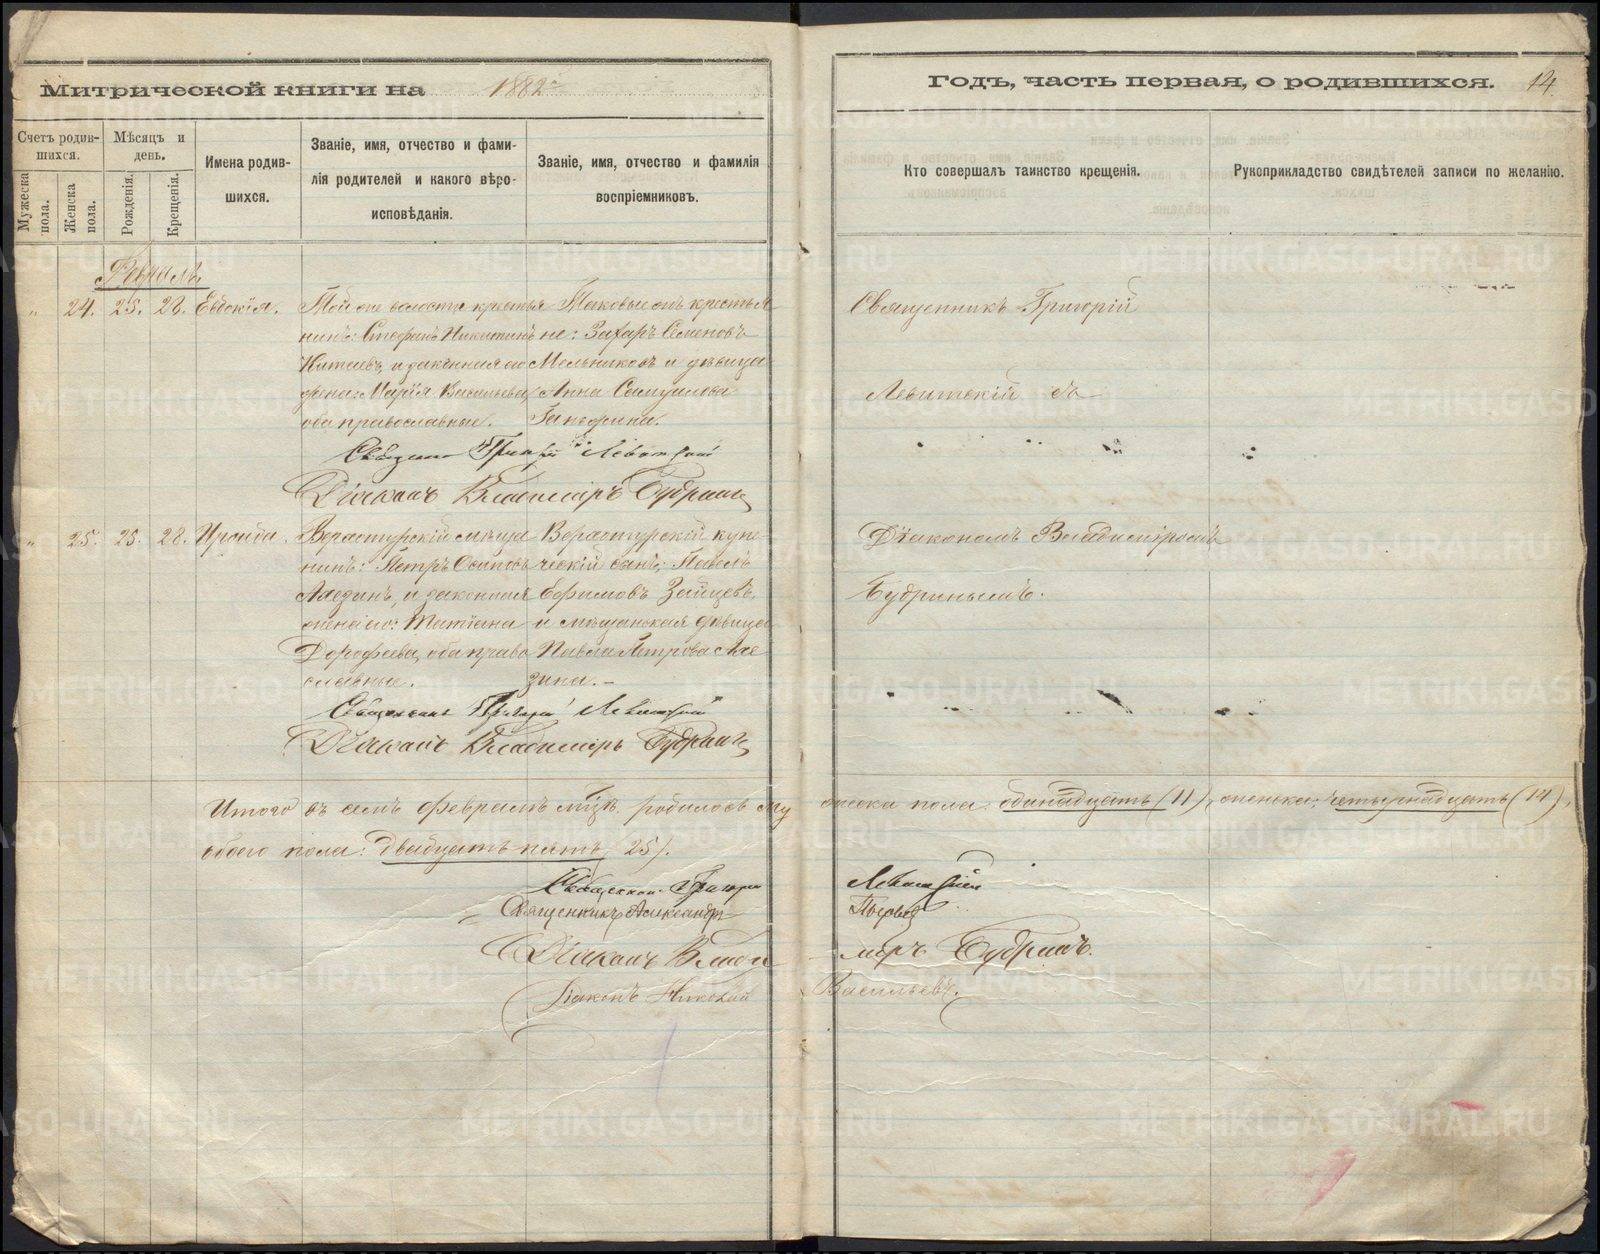 Митрической книги на 1882
Годъ, часть первая, о родившихся. 14.
Счетъ родив-
шихся.
Мужеска
пола.
Женска
пола.
Мѣсяцъ и
день.
Рожденія.
Крещенія.
Имена родив-
шихся.
Званіе, имя, отчество и фами-
лія родителей и какого вѣро-
исповѣданія.
Званіе, имя, отчество и фамилія
воспріемниковъ.
Кто совершалъ таинство крещенія.
Рукоприкладство свидѣтелей записи по желанію.
Февраль
„ 24. 25. 28. Евдокія.
Той же волости крестья
нинъ: Стефанъ Никитинъ
и законная его
жена: Марія Васильева,
оба православные.
Таковые жъ крестья
не: Захаръ Семеновъ
Мельниковъ и дѣвица
Анна Самуилова
Священникъ Григорій
Левитскій съ
Священникъ Григорій Левитскій
Діаконъ Владиміръ Будринъ
„ 25. 25. 28. Ираида.
Верхотурскій мѣща
нинъ: Петръ Осиповъ
и законная
жена его: Татіана
Дорофеева, оба право
славные.
Верхотурскій купе
ческій сынъ: Павелъ
Ефимовъ Зайцевъ
и мѣщанская дѣвица
Петрова
Діакономъ Владиміромъ
Будринымъ.
Священникъ Григорій Левитскій
Діаконъ Владиміръ Будринъ
Итого въ семъ Февралѣ м-цѣ родилось му
жеска пола одинадцать (11), женска: четырнадцать (14),
обоего пола: двадцать пять (25).
Священникъ Григорій Левитскій
Священникъ Александръ
Діаконъ Влади міръ Будринъ.
Діаконъ Николай Васильевъ.
METRIKI.GASO-URAL.RU